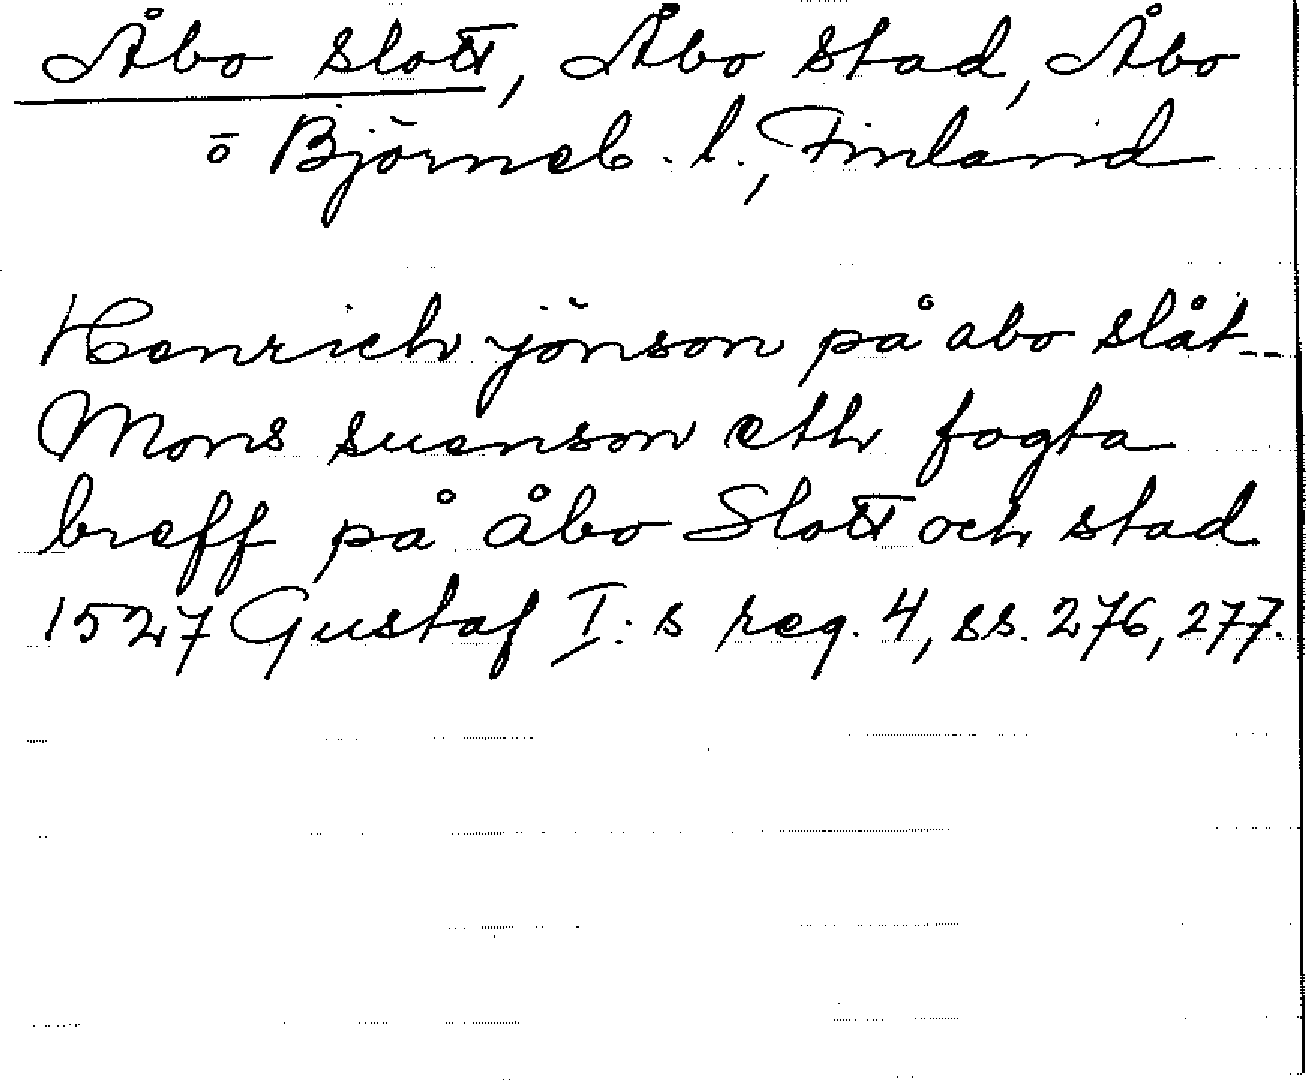 Åbo slott, Åbo stad, Åbo
o Björneb. l., Finland
Henrich jönson på abo slåt --
Mons suenson eth fogta
breff på åbo Slott och stad
1527 Gustaf I:s reg. 4, ss. 276, 277.